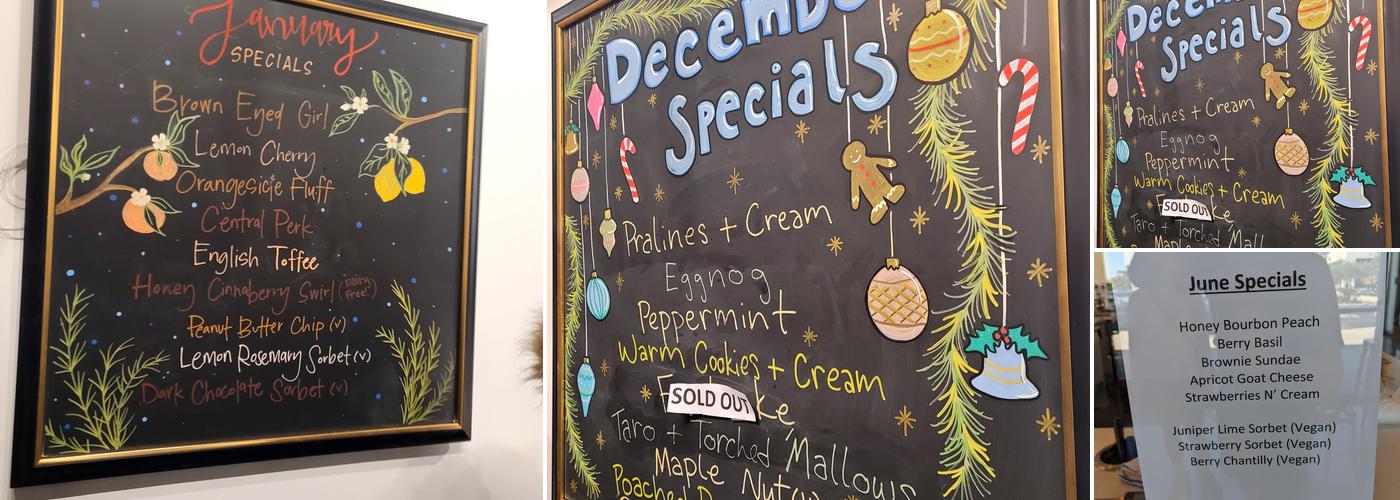 January
SPECIALS
Brown Eyed Girl
Lemon Cherry
Orangesicle Fluff
Central Perk
English Toffee
Honey Cinnaberry Swirl (Dairy Free!)
Peanut Butter Chip (v)
Lemon Rosemary Sorbet (v)
Dark Chocolate Sorbet (v)
Specials
Pralines + Cream
Eggnog
Peppermint
Warm Cookies + Cream
SOLD OUT
Taro + Torched Mallows
Maple Nut (v)
Poached
Specials
Pralines + Cream
Eggnog
Peppermint
Warm Cookies + Cream
SOLD OUT
Taro + Torched Mall
Maple
June Specials
Honey Bourbon Peach
Berry Basil
Brownie Sundae
Apricot Goat Cheese
Strawberries N' Cream
Juniper Lime Sorbet (Vegan)
Strawberry Sorbet (Vegan)
Berry Chantilly (Vegan)